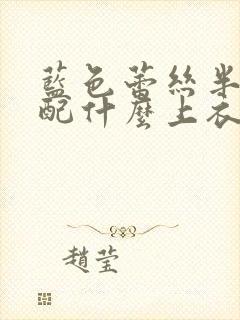 藍色蕾絲半
配什麼上衣
趙瑩